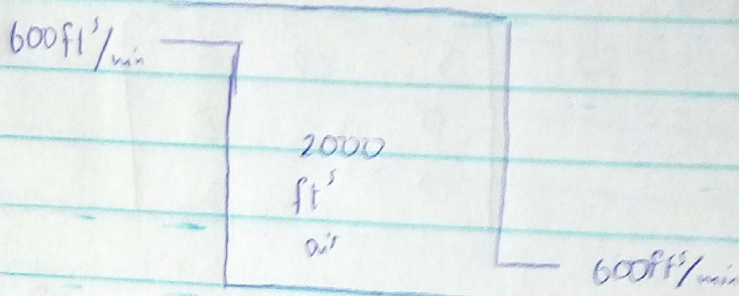 600ft³/min
2000
ft³
air
600ft³/min